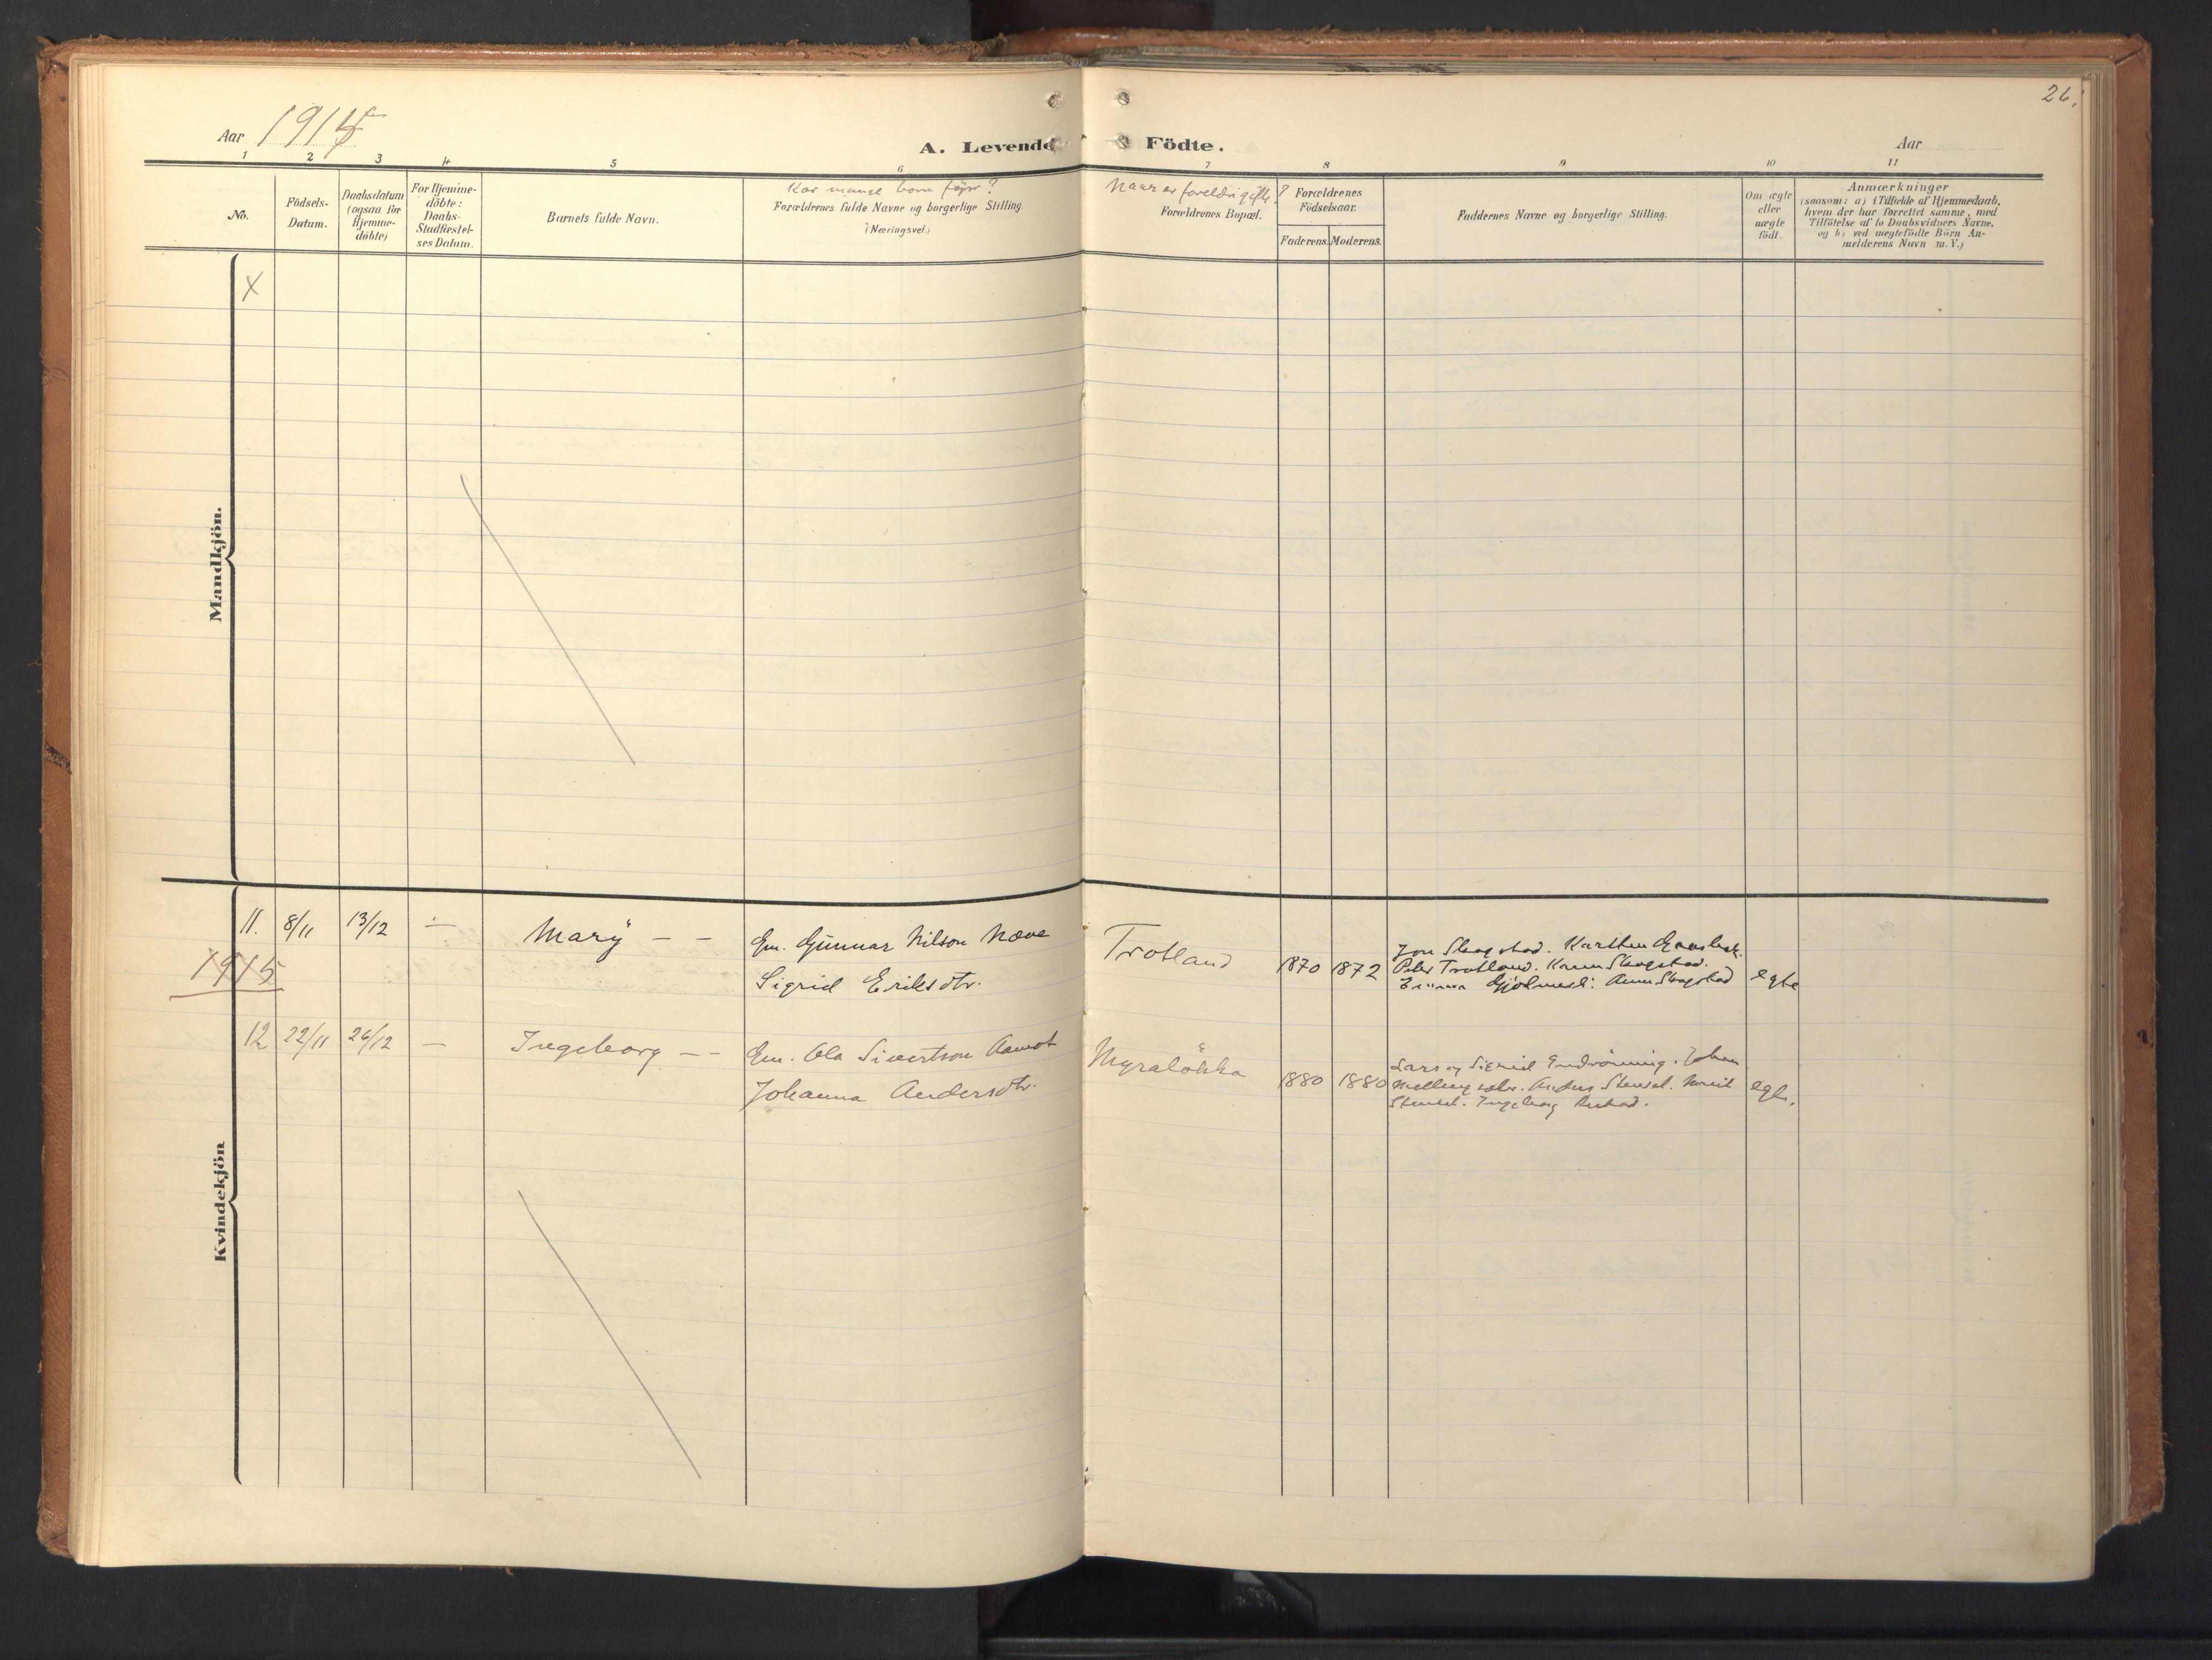 Aar 1915
A. Levende Födte.
26.
Aar
1 2 3 4 5 6 7 8 9 10 11
No.
Födsels-
Datum.
Daabsdatum
(ogsaa for
Hjemme-
döbte)
For Hjemme-
döbte:
Daabs-
Stadfæstel-
ses Datum.
Barnets fulde Navn.
Kor mange born før?
Forældrenes fulde Navne og borgerlige Stilling
(Næringsvei.)
Naar er foreldri gifte?
Forældrenes Bopæl.
Forældrenes
Födselsaar.
Faderens. Moderens.
Faddernes Navne og borgerlige Stilling.
Om ægte
eller
uægte
födt.
Anmærkninger
(saasom: a) i Tilfælde af Hjemmedaab,
hvem der har forrettet samme, med
Tilföielse af to Daabsvidners Navne,
og b) ved uægtefödte Börn An-
melderens Navn m. V.)
X
Mandkjön.
11. 8/11 13/12 — Mary — — Gm. Gunnar Nilson Næve Trotland 1870 1872 Jon Skogstad. Karsten
Peder Trotland. Karen Skogstad.
1915 Sigrid Eriksdtr. Gjölmesli. Anne Skogstad egte
12 22/11 26/12 — Ingeborg — — Gm. Ola Sivertson Aamot Myraløkka 1880 1880 Lars og Sigrid Endrönning. Johan
Johanna Andersdtr. Anders Stensel. Marit egte.
Stensel. Ingeborg
Kvindekjön